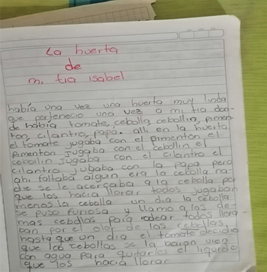 La huerta
de
mi tia isabel
había una vez una huerta muy linda
que pateneció una vez a mi tia don-
de había tomate, cebolla, cebollin, pimen-
ton, cilantro, papa. alli en la huerta
el tomate jugaba con el pimenton el
Pimenton jugaba con el cebollin el
cebollin jugaba con el cilantro el
cilantro jugaba con la papa pero
ahi faltaba alguien era la cebolla na-
die se le acercaba a la cebolla por
que los hacia llorar todos jugaban
menos la cebolla un dia la cebolla
se puso furiosa y llamo a las de-
mas cebollas para rodear todo llora
ban por el olor de las cebollas,
hasta que un dia el tomate decidio
que las cebollas se la
con agua para quitar el liquido
que los hacia llorar